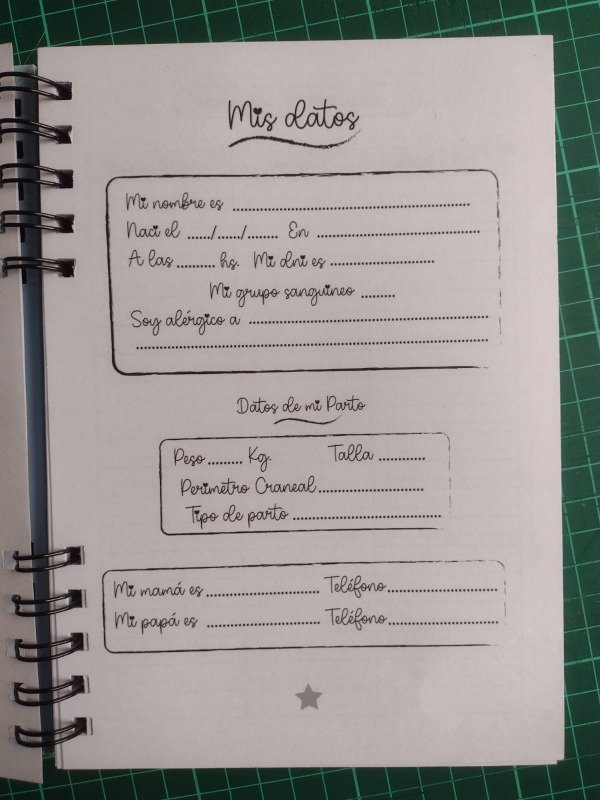 Mis datos
Mi nombre es ........................................
Naci el ....../....../........ En ................................
A las ......... hs. Mi dni es ......................
Mi grupo sanguineo ........
Soy alérgico a ........................................
............................................................
Datos de mi Parto
Peso ........ Kg. Talla ...........
Perimetro Craneal ......................
Tipo de parto ..............................
Mi mamá es ........................ Teléfono ........................
Mi papá es ........................ Teléfono ........................